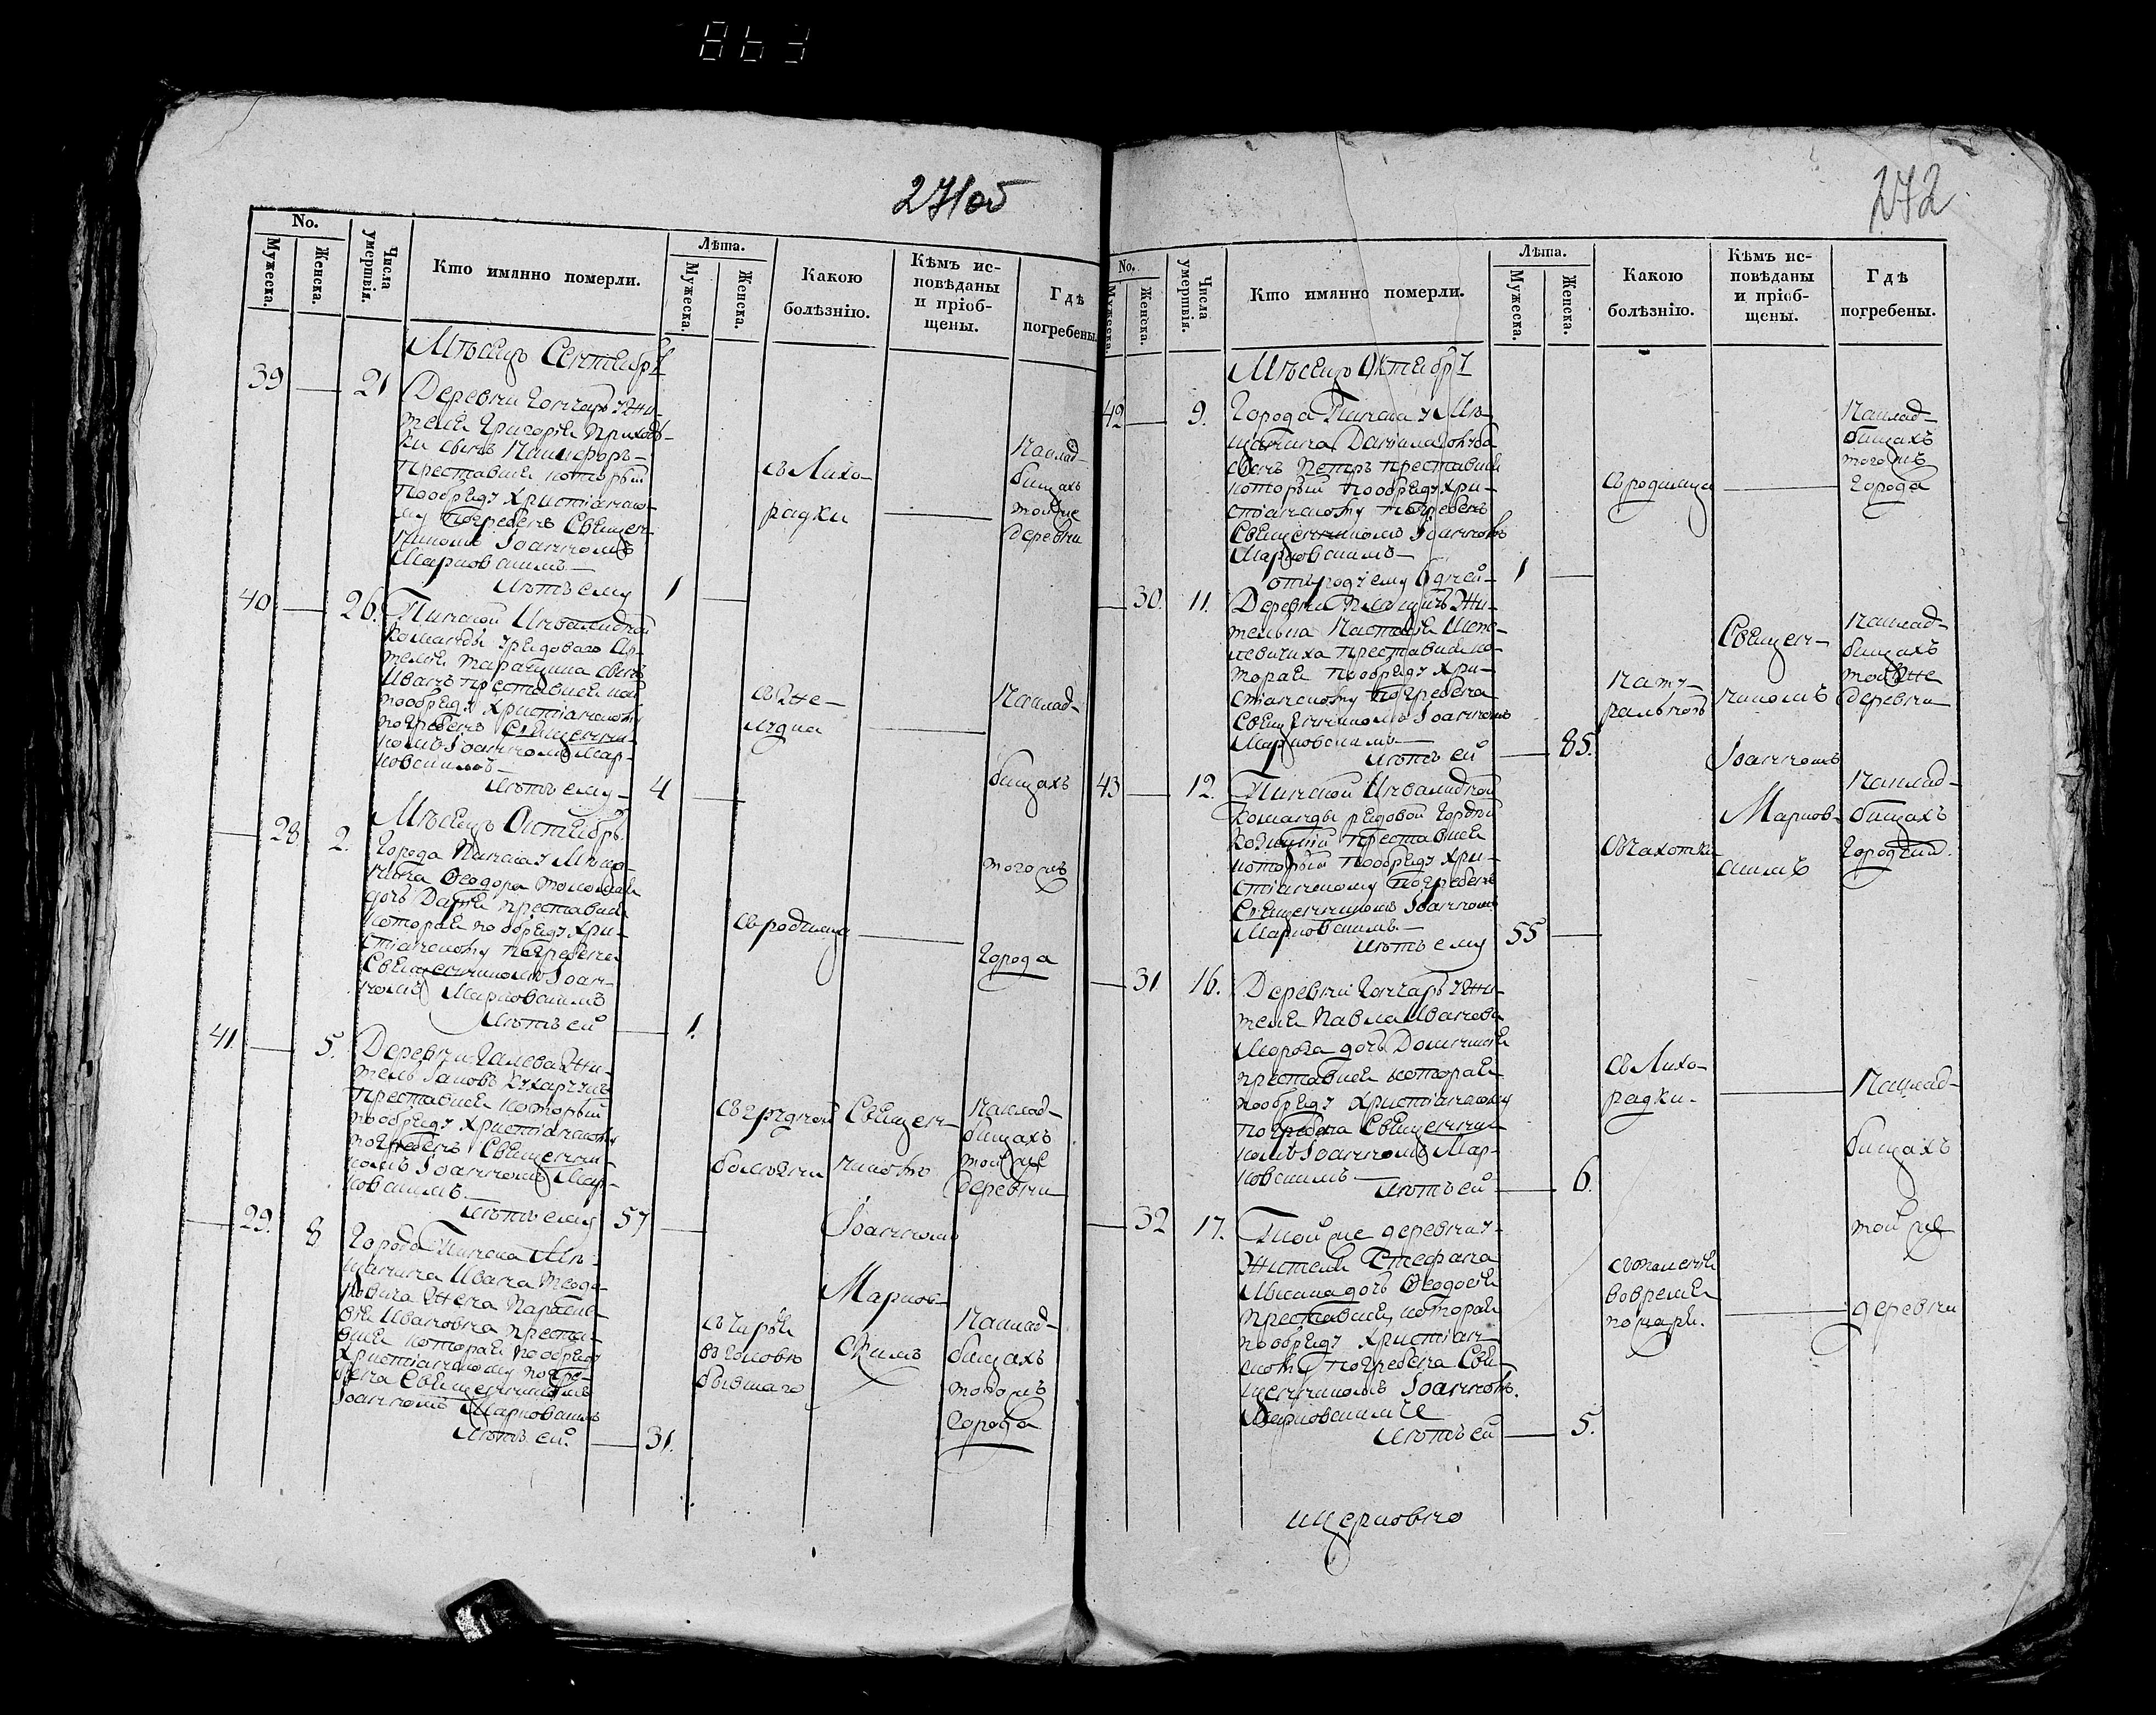 271об
No.
Мужеска.
Женска.
Числа умертвія.
Кто имянно померли.
Лѣта.
Мужеска.
Женска.
Какою болѣзнію.
Кѣмъ исповѣданы и пріобщены.
Гдѣ погребены.
Мѣсецъ Сентебрь
39 — 21
Деревни Гончаръ жи-
теля Григорія
сынъ
преставися который
пообряду христианско-
му погребенъ Священ-
никомъ Іоанномъ
Марковскимъ —
лѣтъ ему 1 —
съ Лихо-
радки —
наклад-
бищахъ
тойже
деревни
40 — 26.
Пинской Инвалидной
команды рядоваго Ар-
темія сынъ
Иванъ преставися кой
пообряду христианскому
погребенъ Священни-
комъ Іоанномъ Мар-
ковскимъ —
лѣтъ ему — 4 —
съ же-
лудка —
наклад-
бищахъ
тогожъ
города
Мѣсецъ Октебрь
— 28 2.
города Пинска Мѣща-
нина Феодора
дочь Дарія преставися
которая пообряду хри-
стианскому погребена
Священникомъ Іоан-
номъ Марковскимъ
лѣтъ ей — 1.
съ родимца —
41. — 5.
Деревни Галева жи-
тель Іаковъ
преставися который
пообряду христианскому
погребенъ Священни-
комъ Іоанномъ Мар-
ковскимъ —
лѣтъ ему 57 —
съ грудной
болѣзни
Священ-
никомъ
Іоанномъ
Марков-
скимъ
наклад-
бищахъ
тойже
деревни
— 29. 8
Города Пинска Мѣ-
щанина Ивана Теодо-
ровича жена
Ивановна преста-
вися которая пообряду
христианскому погре-
бена Священникомъ
Іоанномъ Марковскимъ
лѣтъ ей. — 31.
съ чирія
въ головѣ
бывшаго
наклад-
бищахъ
тогожъ
города
272
No.
Мужеска.
Женска.
Числа умертвія.
Кто имянно померли.
Лѣта.
Мужеска.
Женска.
Какою болѣзнію.
Кѣмъ исповѣданы и пріобщены.
Гдѣ погребены.
Мѣсецъ Октебрь
42 — 9.
Города Пинска Мѣ-
щанина Данила
сынъ Петръ преставися
который пообряду хри-
стианскому погребенъ
Священникомъ Іоанномъ
Марковскимъ —
отъ роду ему 1 —
съ родимца —
наклад-
бищахъ
тогожъ
города
— 30. 11.
Деревни жи-
тельна Настасія
преставися ко-
торая пообряду хри-
стианскому погребена
Священникомъ Іоанномъ
Марковскимъ —
лѣтъ ей — 85.
нату-
ральною
Священ-
никомъ
Іоанномъ
Марков-
скимъ
наклад-
бищахъ
тойже
деревни
43 — 12.
Пинской Инвалидной
команды рядовой
преставися
который пообряду хри-
стианскому погребенъ
Священникомъ Іоанномъ
Марковскимъ. —
лѣтъ ему 55 —
съ чахотки
наклад-
бищахъ
городскихъ.
— 31 16.
Деревни Гончаръ жи-
теля Павла Иванова
Мороза дочь Домникія
преставися которая
пообряду христианскому
погребена Священни-
комъ Іоанномъ Мар-
ковскимъ —
лѣтъ ей — 6.
съ Лихо-
радки. —
наклад-
бищахъ
— 32 17.
Тойже деревни
жителя Стефана
дочь Феодосія
преставися, которая
пообряду христиан-
скому погребена Свя-
щенникомъ Іоанномъ.
Марковскимъ
лѣтъ ей — 5.
вовремя
пожара. —
тойже
деревни